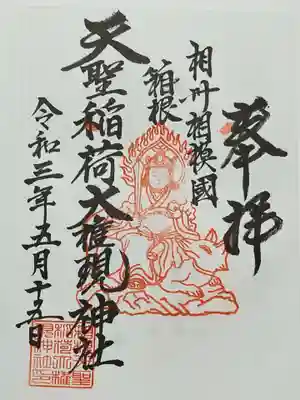 奉拝
相州相模國
箱根
天聖稲荷大権現神社
令和三年五月十五日